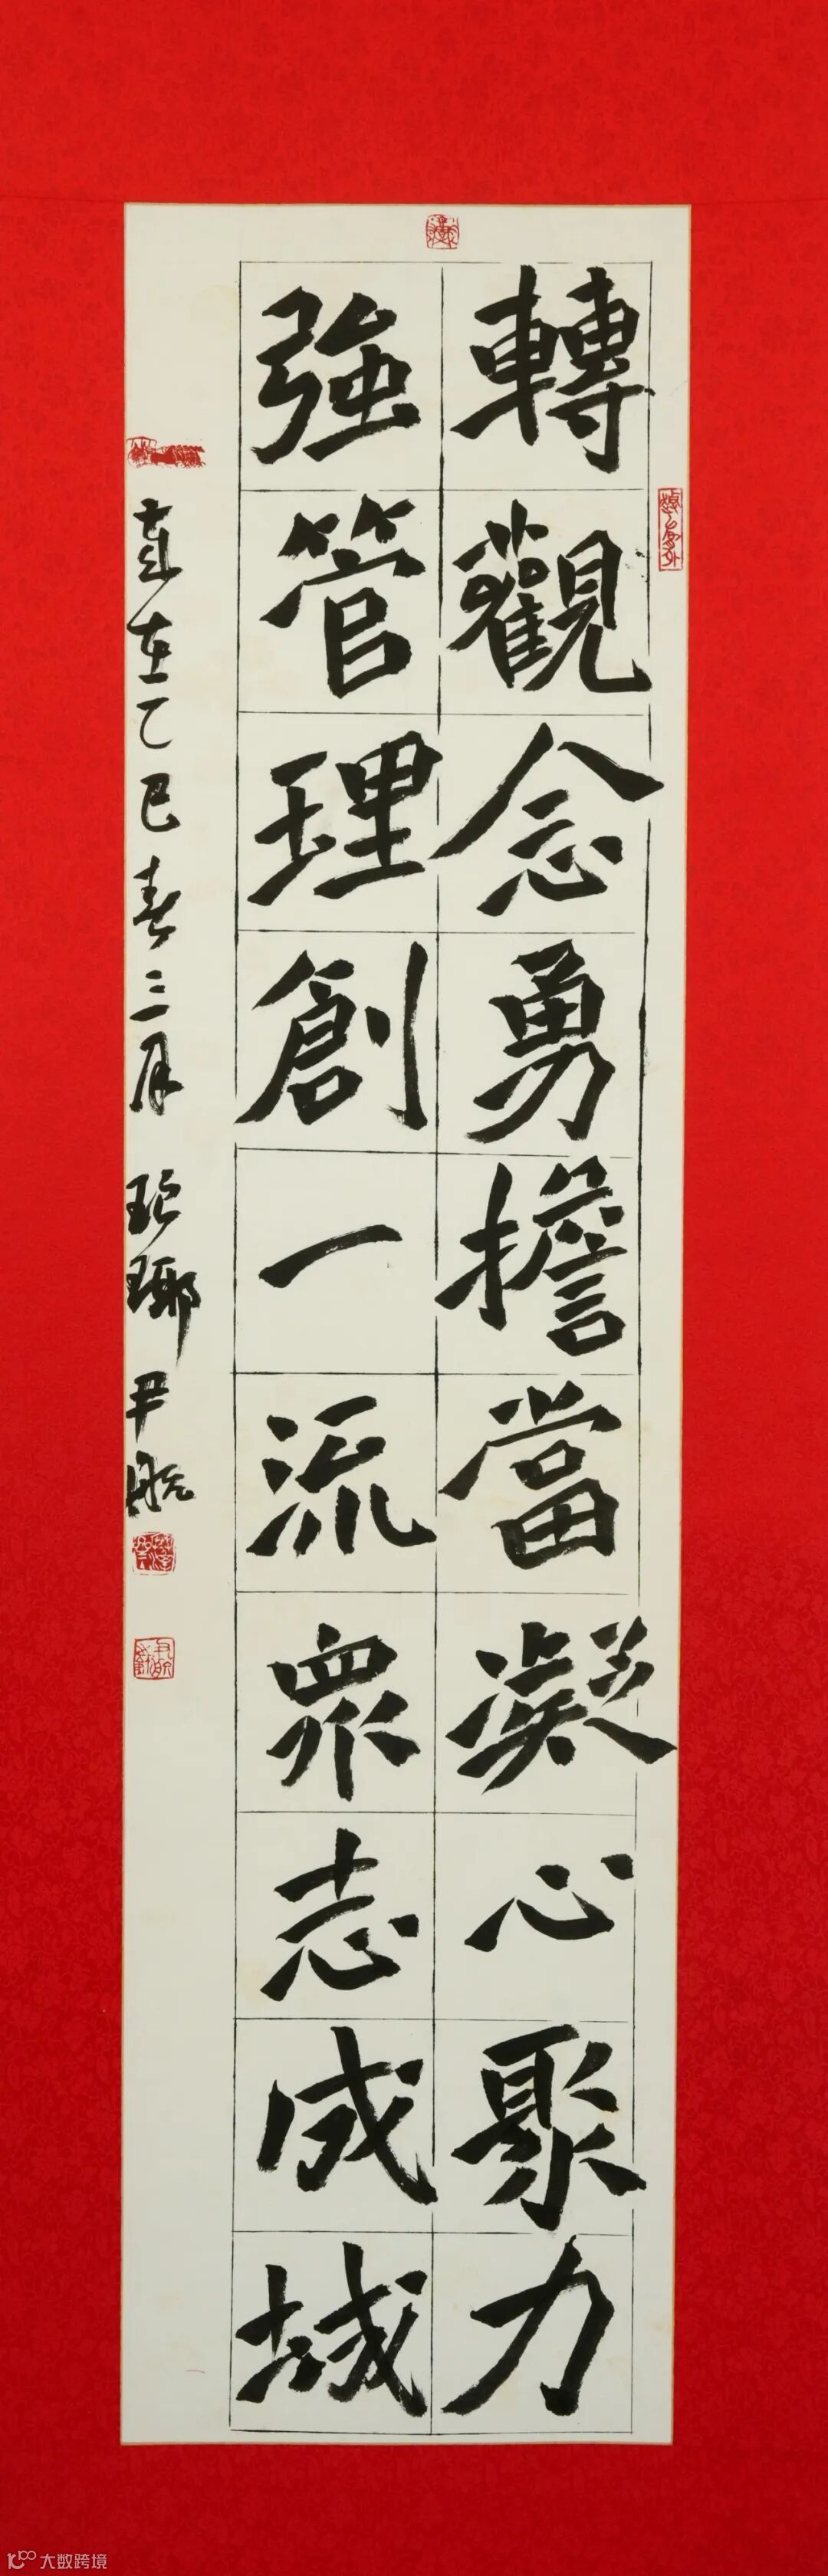 轉觀念勇擔當凝心聚力
強管理創一流眾志成城
歲在乙巳春三月 琅琊尹航
大数跨境